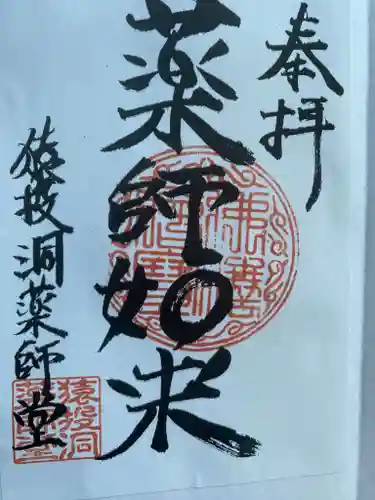 奉拝
薬師如来
猿投洞薬師堂